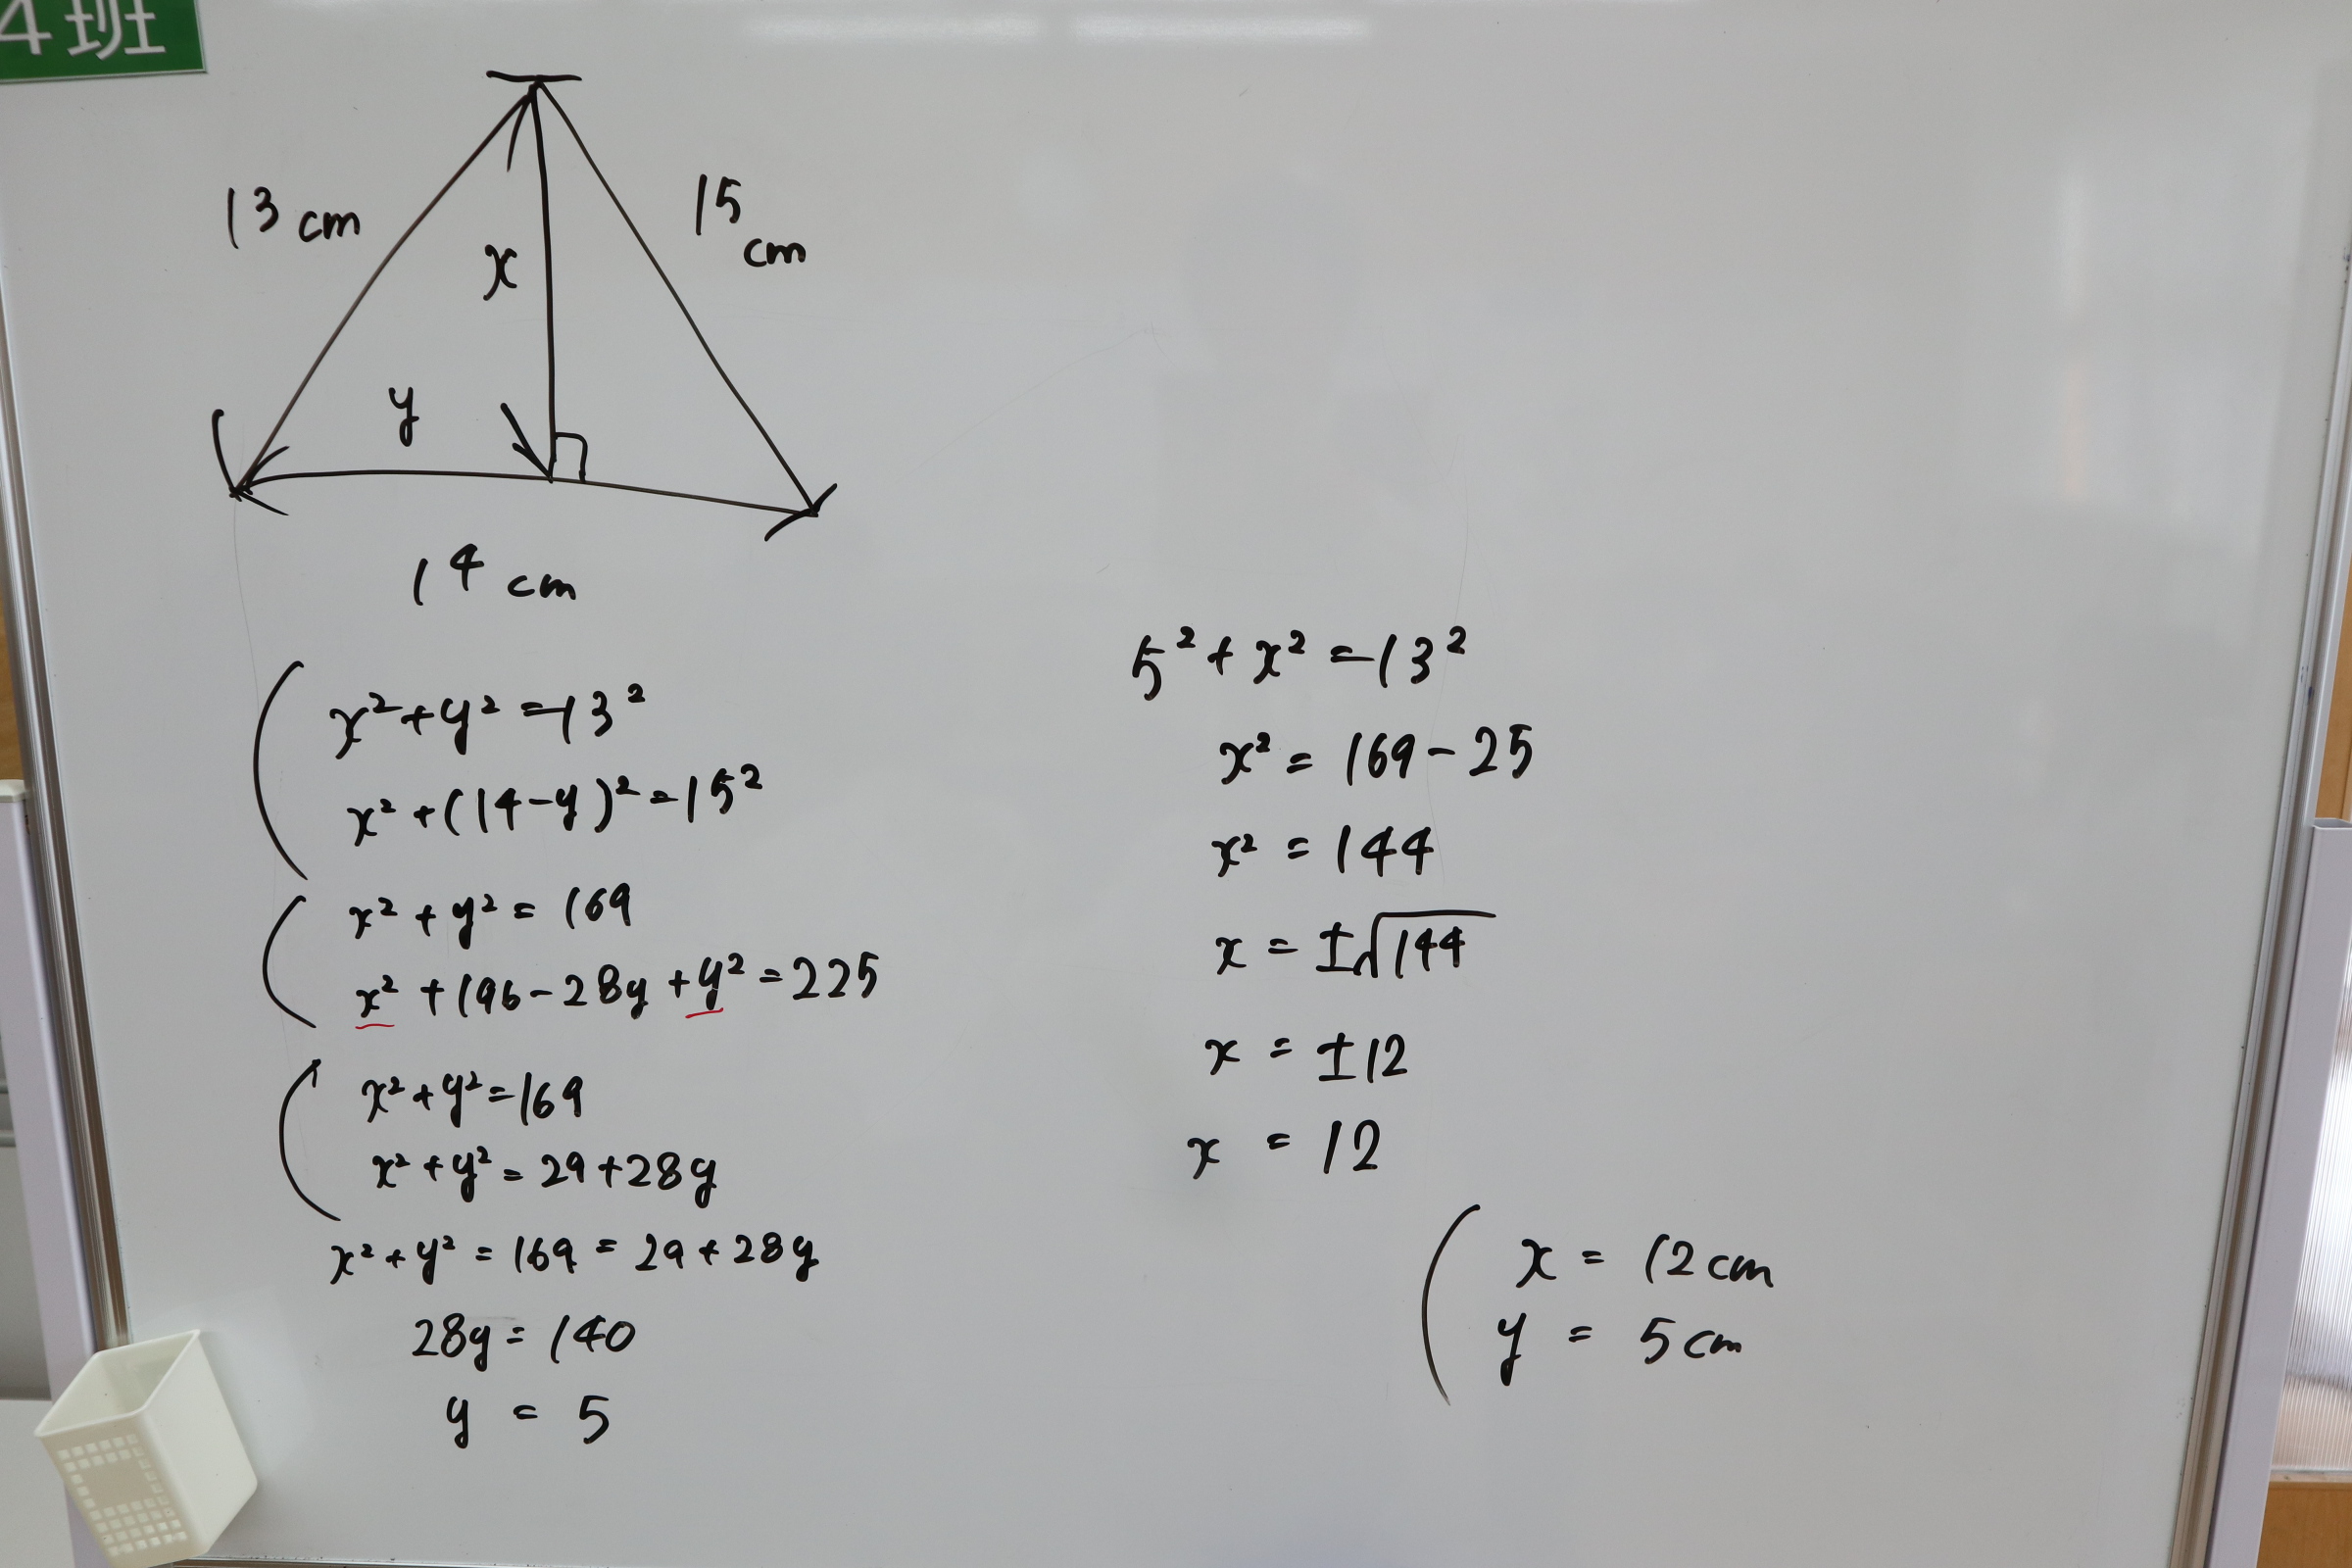 4班
13 cm
15 cm
x
y
14 cm
x²+y²=13²
x²+(14-y)²=15²
x²+y²=169
x²+196-28y+y²=225
x²+y²=169
x²+y²=29+28y
x²+y²=169=29+28y
28y=140
y=5
5²+x²=13²
x²=169-25
x²=144
x=±√144
x=±12
x=12
x=12cm
y=5cm